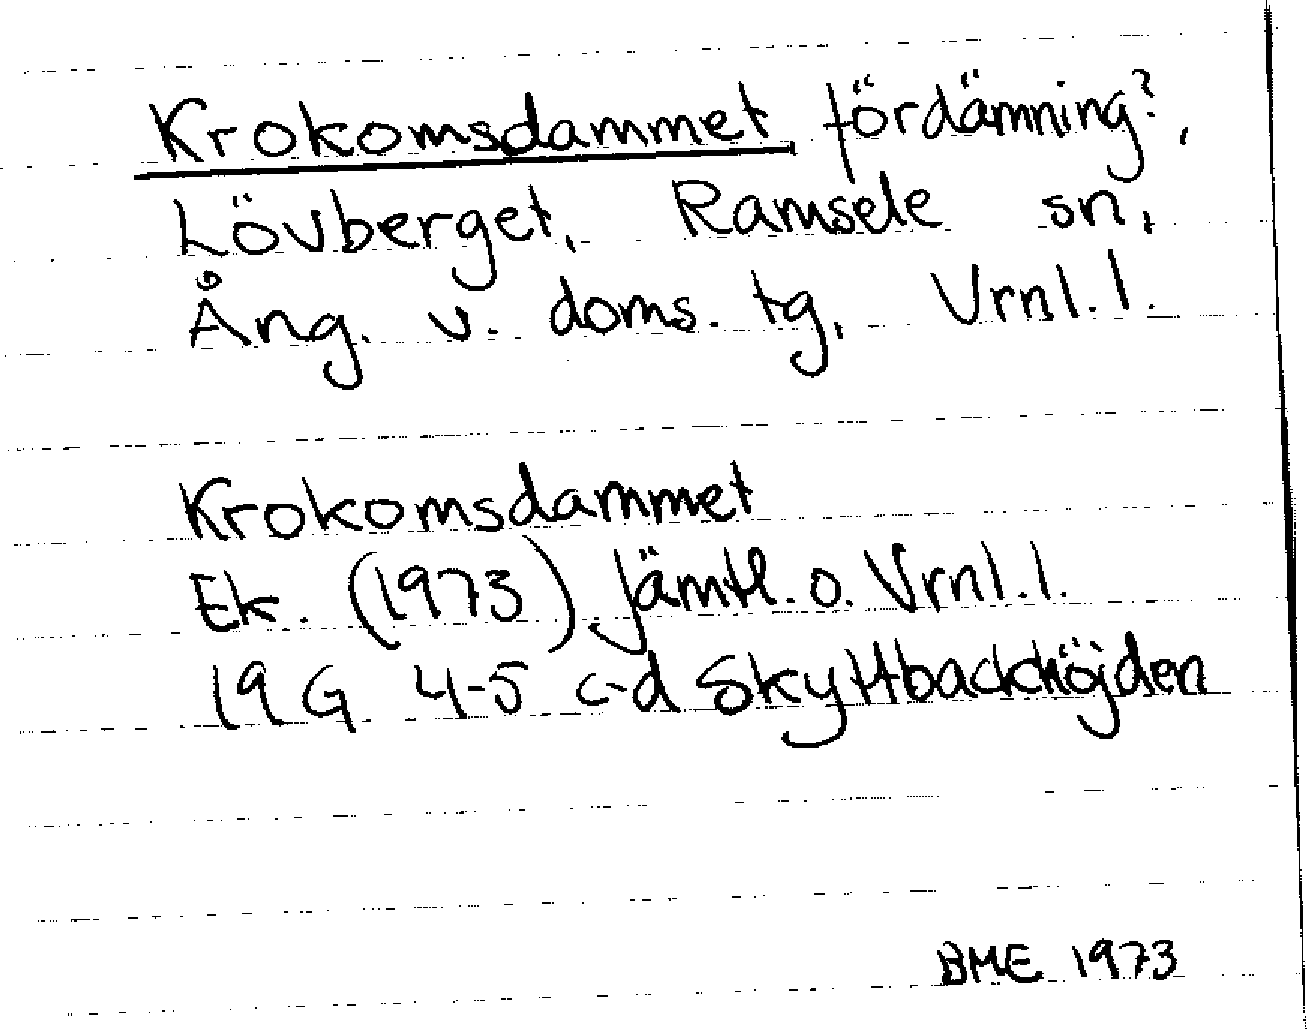 Krokomsdammet fördämning?,
Lövberget, Ramsele sn,
Ång. v. doms. tg, Vrnl. l.
Krokomsdammet
Ek. (1973) Jämtl. o. Vrnl. l.
19 G 4-5 c-d Skyttbackhöjden
BME 1973